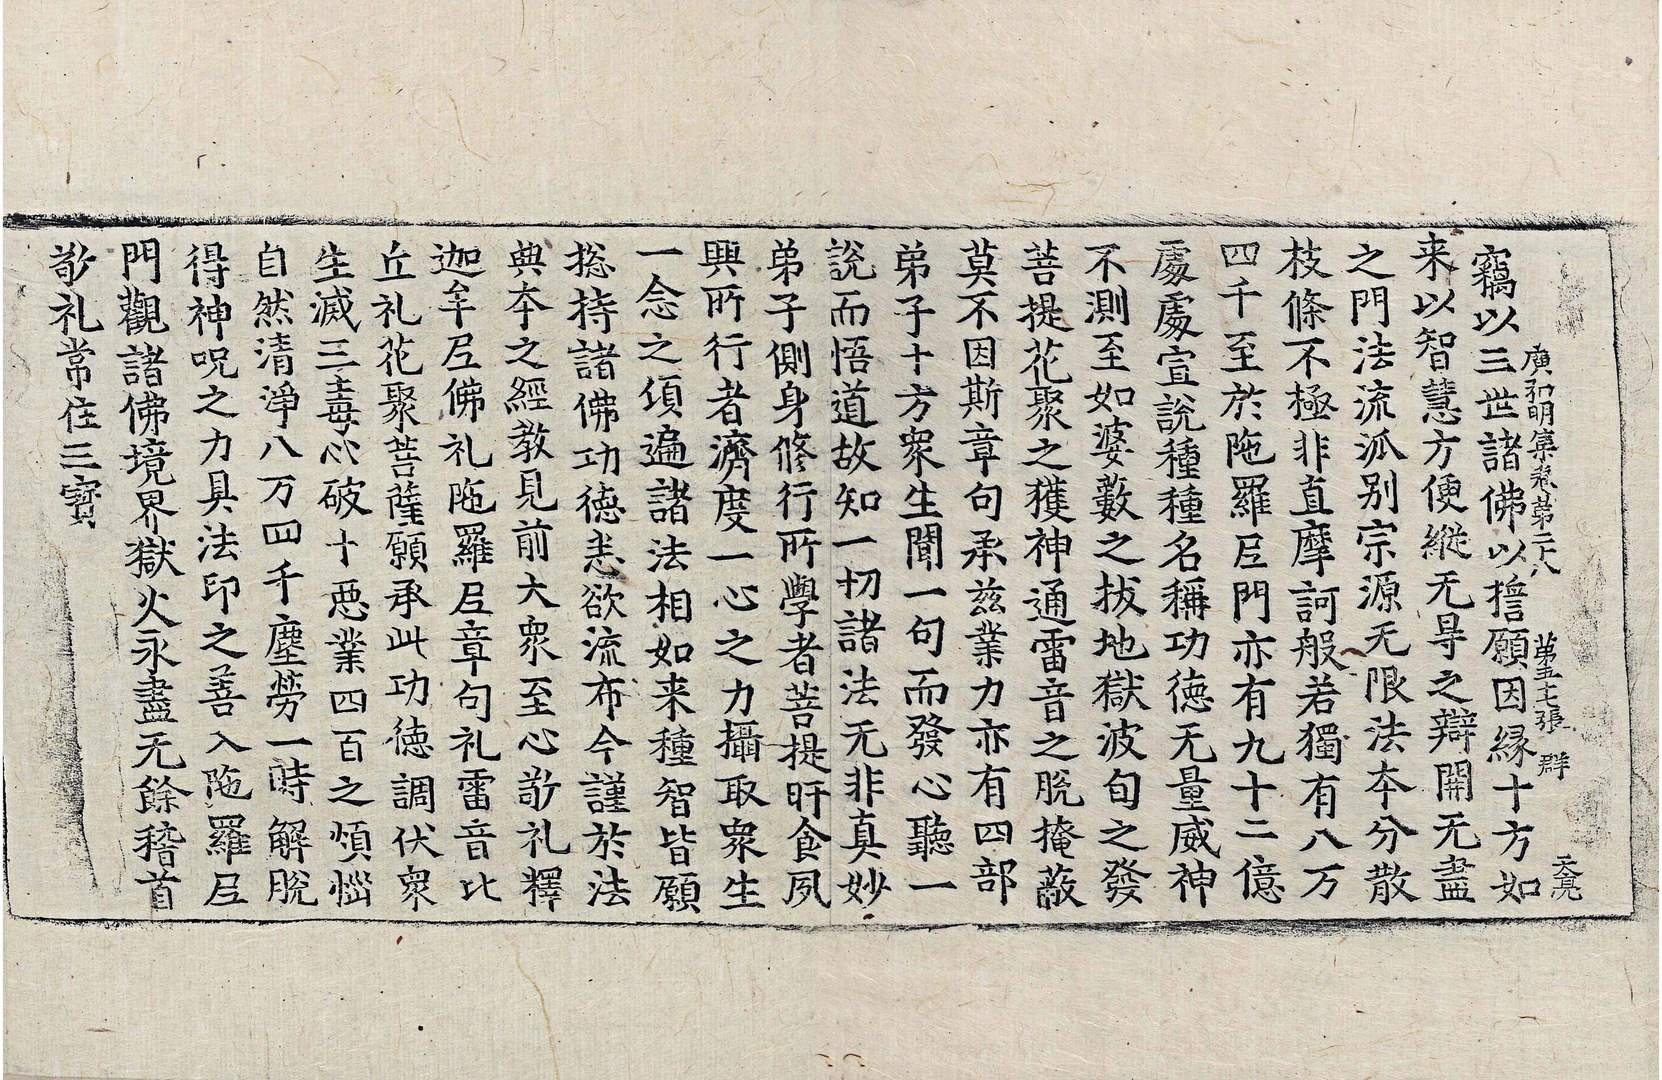 廣弘明集卷第二十八　第五十七張　群
天亮
竊以三世諸佛以擔願因緣十方如
来以智慧方便縱无㝵之辯開无盡
之門法流𣲖别宗源无限法夲分散
枝條不極非直摩訶般若獨有八万
四千至於陁羅𡰱門亦有九十二億
䖏䖏宣說種種名稱功徳无量威神
不測至如婆藪之拔地獄波旬之發
菩提花聚之獲神通雷音之脫掩蔽
莫不因斯章句承兹業力亦有四部
弟子十方衆生聞一句而發心聽一
說而悟道故知一切諸法无非真妙
弟子側身修行所學者菩提旰食夙
興所行者濟度一心之力攝取衆生
一念之須遍諸法相如来種智皆願
捴持諸佛功徳悉欲流布今謹於法
典夲之經教見前大衆至心敬礼釋
迦牟𡰱佛礼陁羅𡰱章句礼雷音比
丘礼花聚菩薩願承此功徳調伏衆
生滅三毒心破十惡業四百之煩惱
自然清淨八万四千塵勞一時解脫
得神呪之力具法印之善入陁羅𡰱
門觀諸佛境界獄火永盡无餘稽首
敬礼常住三寶